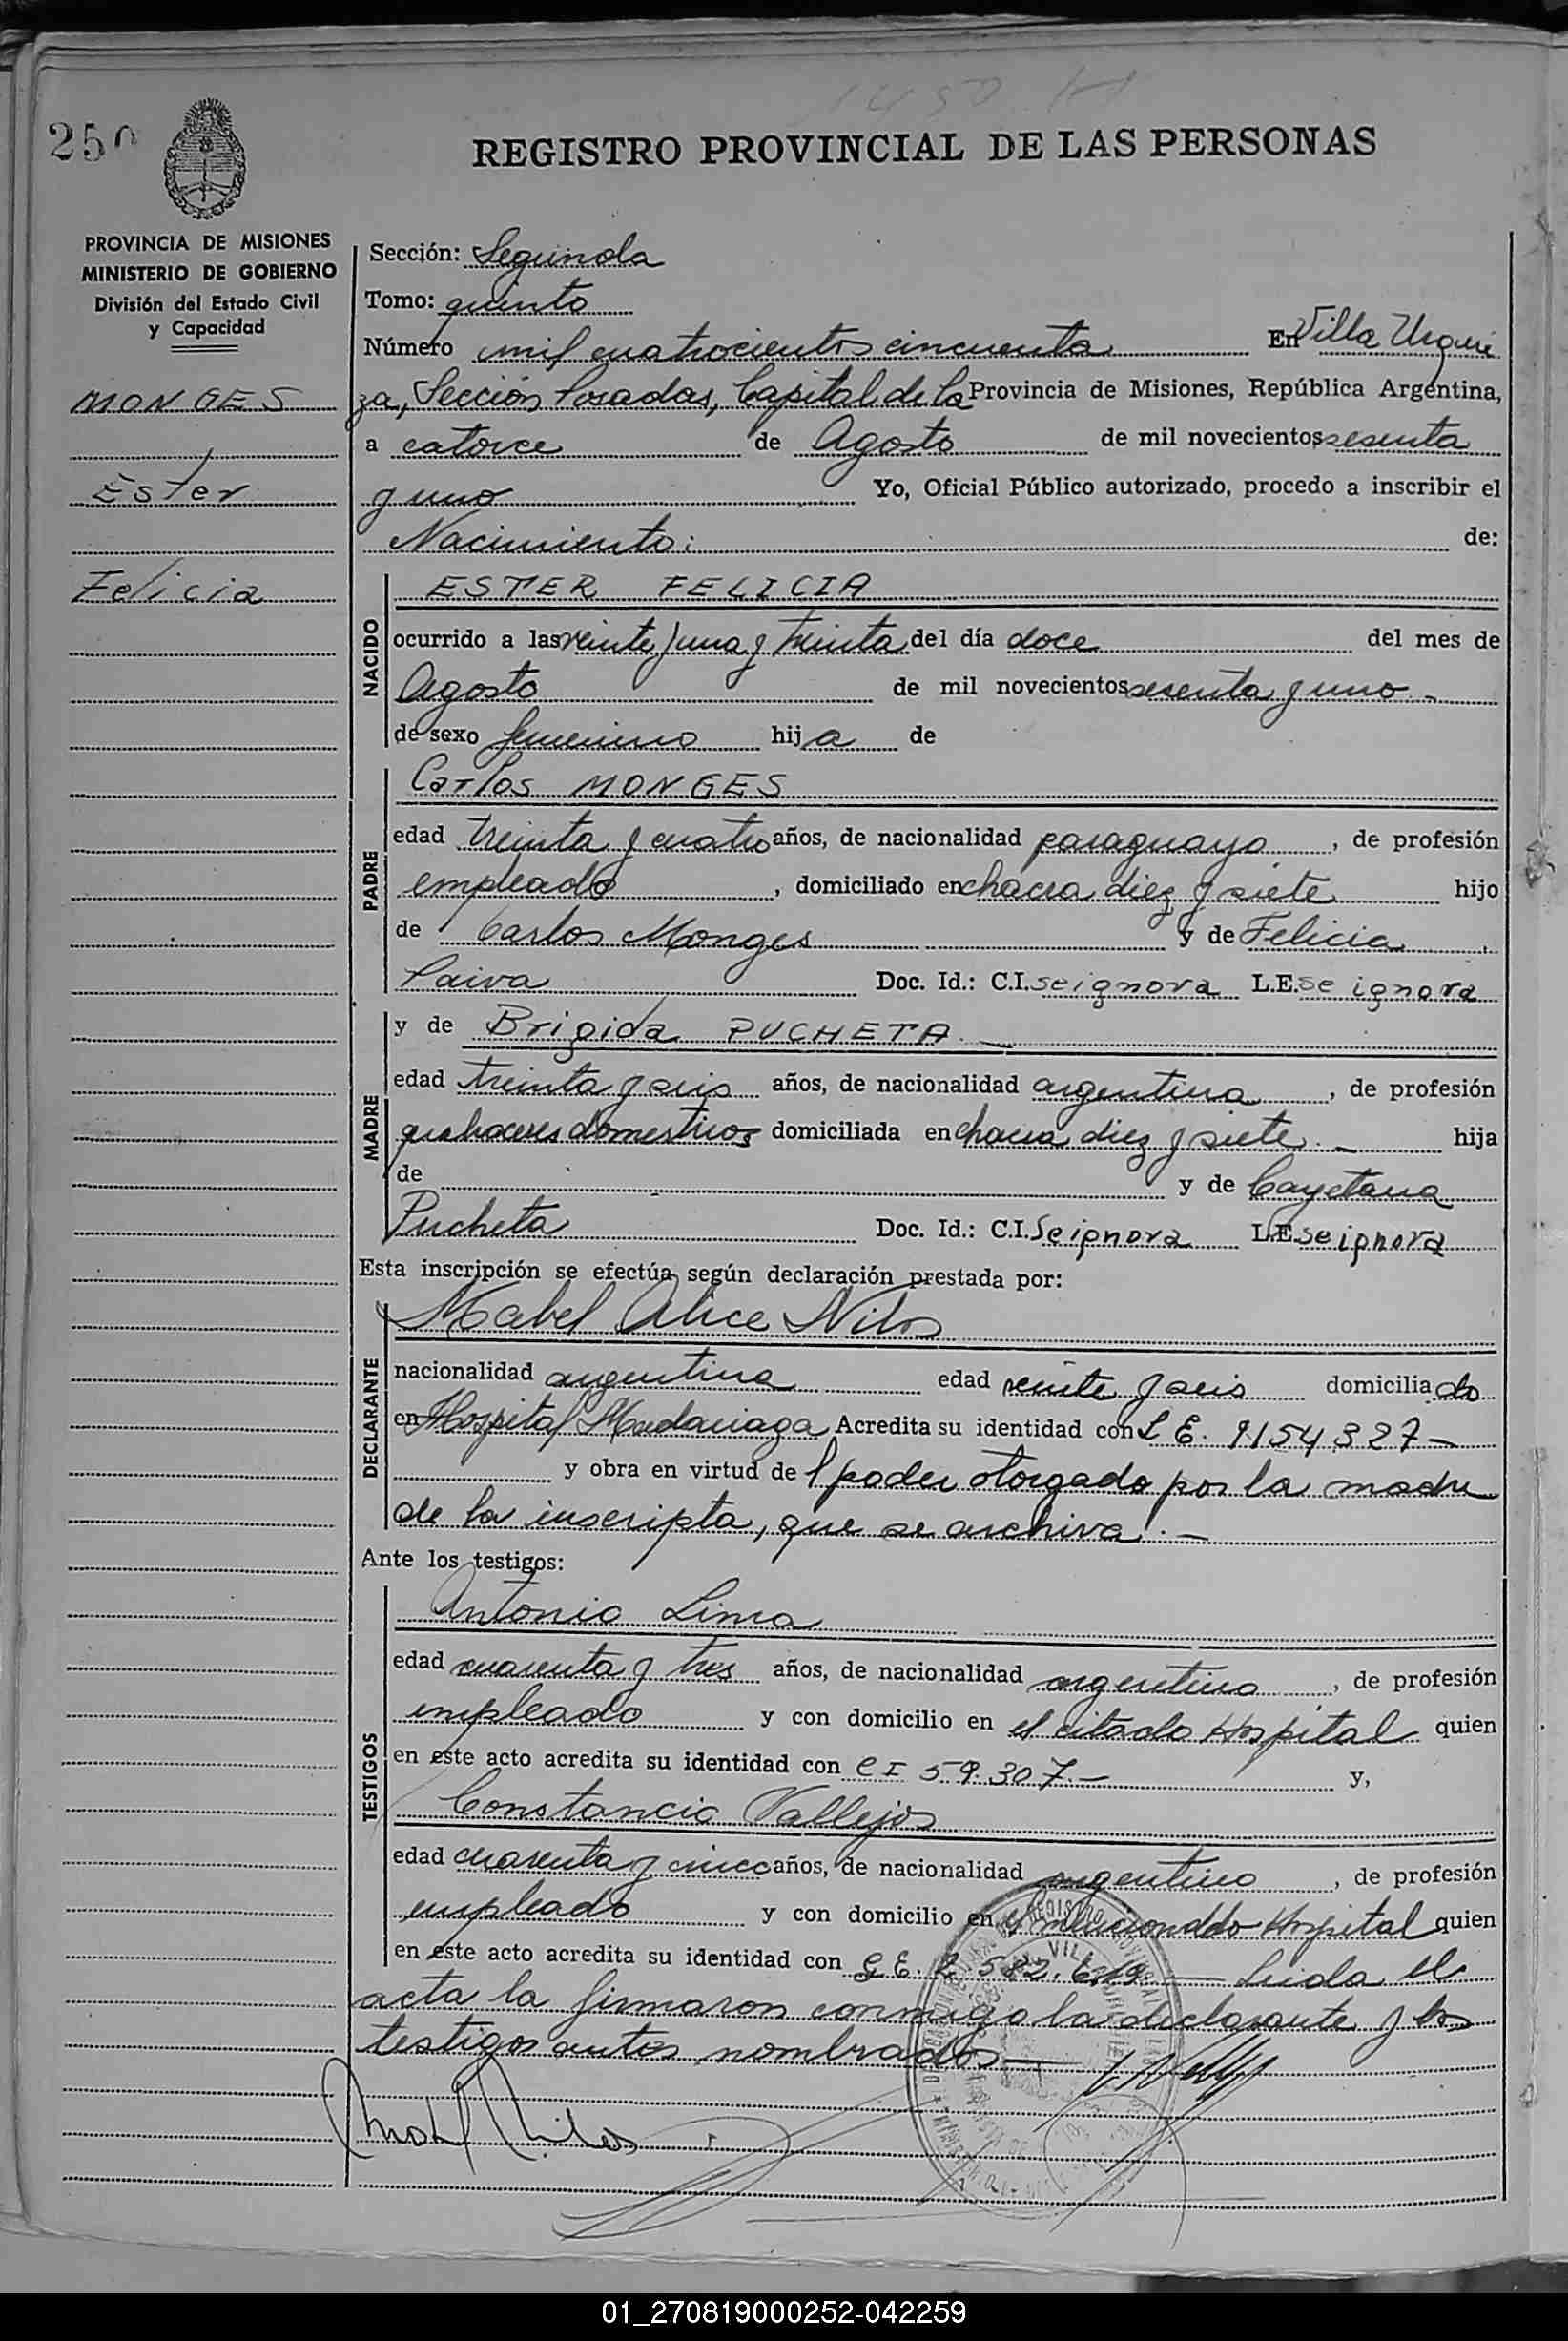 1450 H
250
REGISTRO PROVINCIAL DE LAS PERSONAS
PROVINCIA DE MISIONES
MINISTERIO DE GOBIERNO
División del Estado Civil
y Capacidad
MONGES
Ester
Felicia
Sección: Segunda
Tomo: quinto
Número mil cuatrocientos cincuenta En Villa Urqui
za, Sección Posadas, Capital de la Provincia de Misiones, República Argentina,
a catorce de Agosto de mil novecientos sesenta
y uno Yo, Oficial Público autorizado, procedo a inscribir el
Nacimiento: de:
NACIDO
ESTER FELICIA
ocurrido a las veinte y una y treinta del día doce del mes de
Agosto de mil novecientos sesenta y uno.-
de sexo femenino hija de
PADRE
Carlos MONGES
edad treinta y cuatro años, de nacionalidad paraguaya, de profesión
empleado, domiciliado en chacra diez y siete hijo
de Carlos Monges y de Felicia
Paiva Doc. Id.: C.I. se ignora L.E. se ignora
MADRE
y de Brigida PUCHETA.-
edad treinta y seis años, de nacionalidad argentina, de profesión
quehaceres domesticos domiciliada en chacra diez y siete.- hija
de y de Cayetana
Pucheta Doc. Id.: C.I. Se ignora L.E. se ignora
Esta inscripción se efectúa, según declaración prestada por:
DECLARANTE
Mabel Alice Nilos
nacionalidad argentina edad veinte y seis domiciliado
en Hospital Madariaga Acredita su identidad con L E. 9154327-
y obra en virtud del poder otorgado por la madre
de la inscripta, que se archiva.-
Ante los testigos:
TESTIGOS
Antonio Lima
edad cuarenta y tres años, de nacionalidad argentino, de profesión
empleado y con domicilio en el citado Hospital quien
en este acto acredita su identidad con C I 59.307.- y,
Constancio Vallejos
edad cuarenta y cinco años, de nacionalidad argentino, de profesión
empleado y con domicilio en el mencionado Hospital quien
en este acto acredita su identidad con Leida el
acta la firmaron conmigo la declarante y los
testigos antes nombrados-
Mabel Nilos
01_270819000252-042259